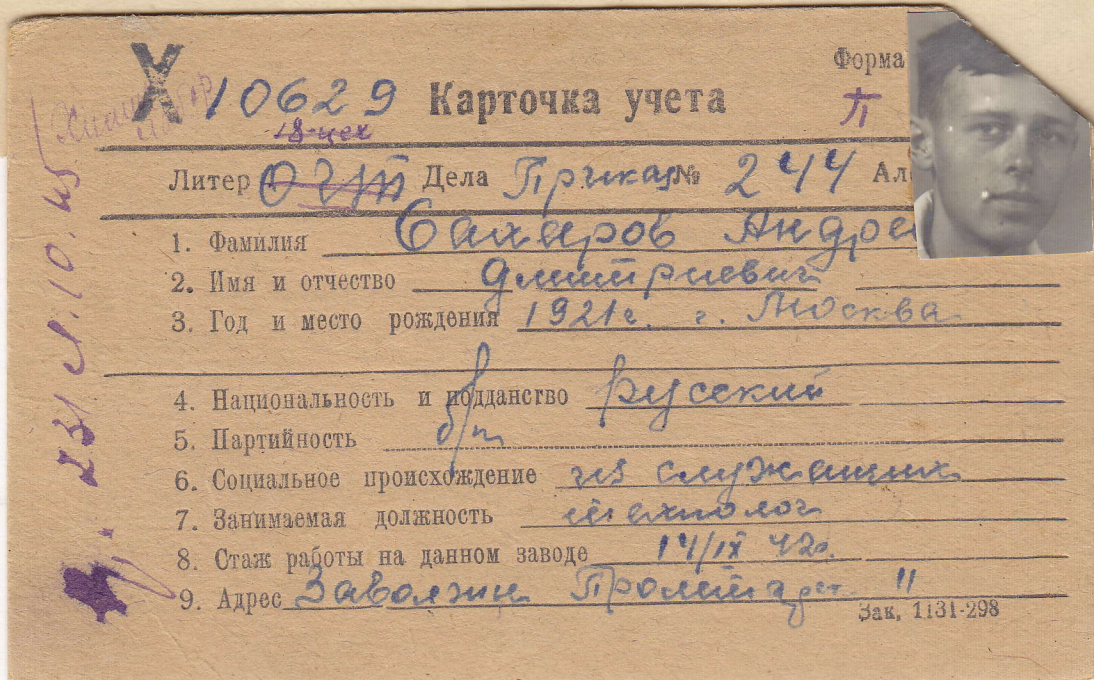 Форма
Х 10629 Карточка учета П
18-цех
Литер Дела Приказ № 244 Ал
1. Фамилия Сахаров Андре
2. Имя и отчество Дмитриевич
3. Год и место рождения 1921г. г. Москва
4. Национальность и подданство русский
5. Партийность б/п
6. Социальное происхождение из служащих
7. Занимаемая должность технолог
8. Стаж работы на данном заводе 14/IX 42г.
9. Адрес Пролетарс. 11
Зак, 1131-298